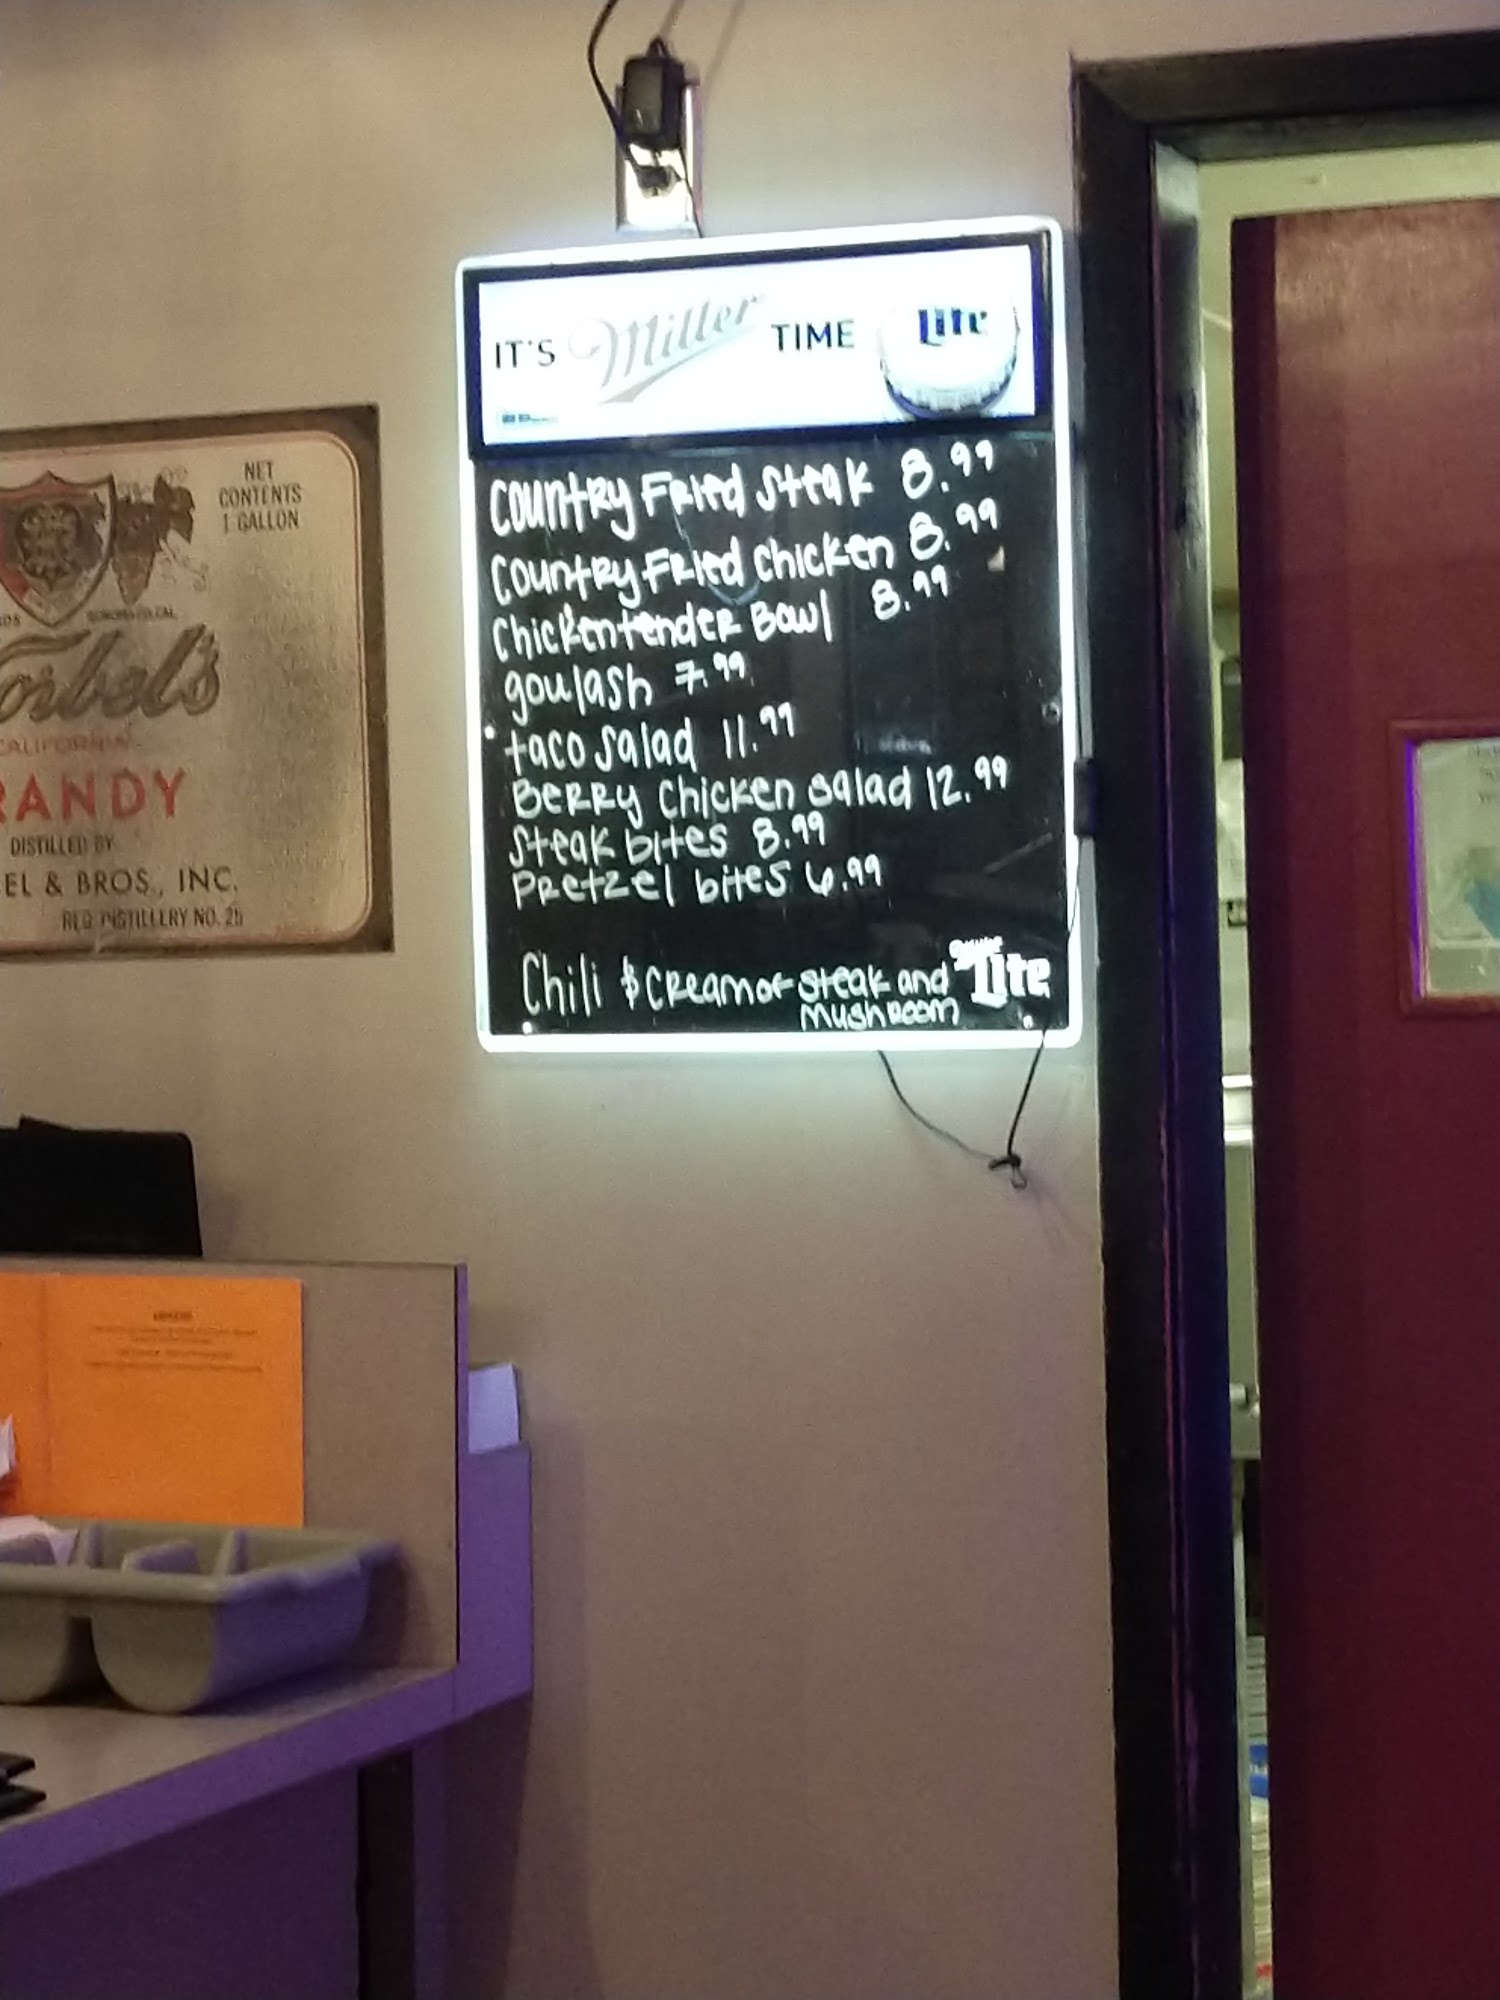 IT'S Miller TIME Lite
Country Fried Steak 8.99
Country Fried Chicken 8.99
Chicken tender Bowl 8.99
goulash 7.99
taco salad 11.99
Berry Chicken salad 12.99
Steak bites 8.99
Pretzel bites 6.99
Chili & Cream of steak and
Mushroom
Lite
NET
CONTENTS
1 GALLON
orbel's
CALIFORNIA
RANDY
DISTILLED BY
EL & BROS., INC.
REG. DISTILLERY NO. 25